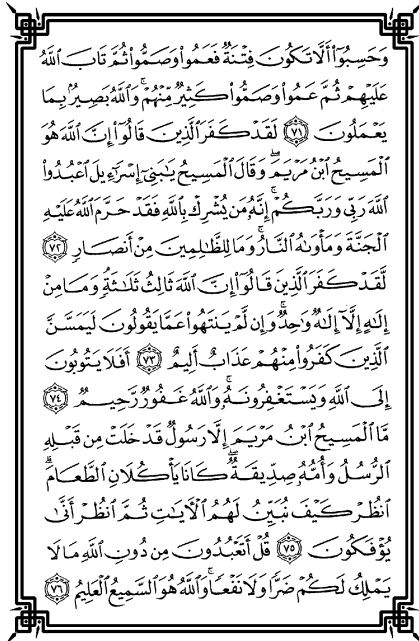 وَحَسِبُوٓا۟ أَلَّا تَكُونَ فِتْنَةٌ فَعَمُوا۟ وَصَمُّوا۟ ثُمَّ تَابَ ٱللَّهُ
عَلَيْهِمْ ثُمَّ عَمُوا۟ وَصَمُّوا۟ كَثِيرٌ مِّنْهُمْ ۚ وَٱللَّهُ بَصِيرٌۢ بِمَا
يَعْمَلُونَ ٧١ لَقَدْ كَفَرَ ٱلَّذِينَ قَالُوٓا۟ إِنَّ ٱللَّهَ هُوَ
ٱلْمَسِيحُ ٱبْنُ مَرْيَمَ ۖ وَقَالَ ٱلْمَسِيحُ يَٰبَنِىٓ إِسْرَٰٓءِيلَ ٱعْبُدُوا۟
ٱللَّهَ رَبِّى وَرَبَّكُمْ ۖ إِنَّهُۥ مَن يُشْرِكْ بِٱللَّهِ فَقَدْ حَرَّمَ ٱللَّهُ عَلَيْهِ
ٱلْجَنَّةَ وَمَأْوَىٰهُ ٱلنَّارُ ۖ وَمَا لِلظَّٰلِمِينَ مِنْ أَنصَارٍ ٧٢
لَّقَدْ كَفَرَ ٱلَّذِينَ قَالُوٓا۟ إِنَّ ٱللَّهَ ثَالِثُ ثَلَٰثَةٍ ۘ وَمَا مِنْ
إِلَٰهٍ إِلَّآ إِلَٰهٌ وَٰحِدٌ ۚ وَإِن لَّمْ يَنتَهُوا۟ عَمَّا يَقُولُونَ لَيَمَسَّنَّ
ٱلَّذِينَ كَفَرُوا۟ مِنْهُمْ عَذَابٌ أَلِيمٌ ٧٣ أَفَلَا يَتُوبُونَ
إِلَى ٱللَّهِ وَيَسْتَغْفِرُونَهُۥ ۚ وَٱللَّهُ غَفُورٌ رَّحِيمٌ ٧٤
مَّا ٱلْمَسِيحُ ٱبْنُ مَرْيَمَ إِلَّا رَسُولٌ قَدْ خَلَتْ مِن قَبْلِهِ
ٱلرُّسُلُ وَأُمُّهُۥ صِدِّيقَةٌ ۖ كَانَا يَأْكُلَانِ ٱلطَّعَامَ ۗ
ٱنظُرْ كَيْفَ نُبَيِّنُ لَهُمُ ٱلْءَايَٰتِ ثُمَّ ٱنظُرْ أَنَّىٰ
يُؤْفَكُونَ ٧٥ قُلْ أَتَعْبُدُونَ مِن دُونِ ٱللَّهِ مَا لَا
يَمْلِكُ لَكُمْ ضَرًّا وَلَا نَفْعًا ۚ وَٱللَّهُ هُوَ ٱلسَّمِيعُ ٱلْعَلِيمُ ٧٦